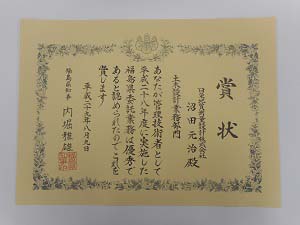 賞状
土木設計業務部門
沼田元治殿
あなたが管理技術者として
平成二十八年度に実施した
福島県委託業務は優秀で
あると認められたのでこれを
賞します
平成二十九年八月九日
福島県知事 内堀雅雄